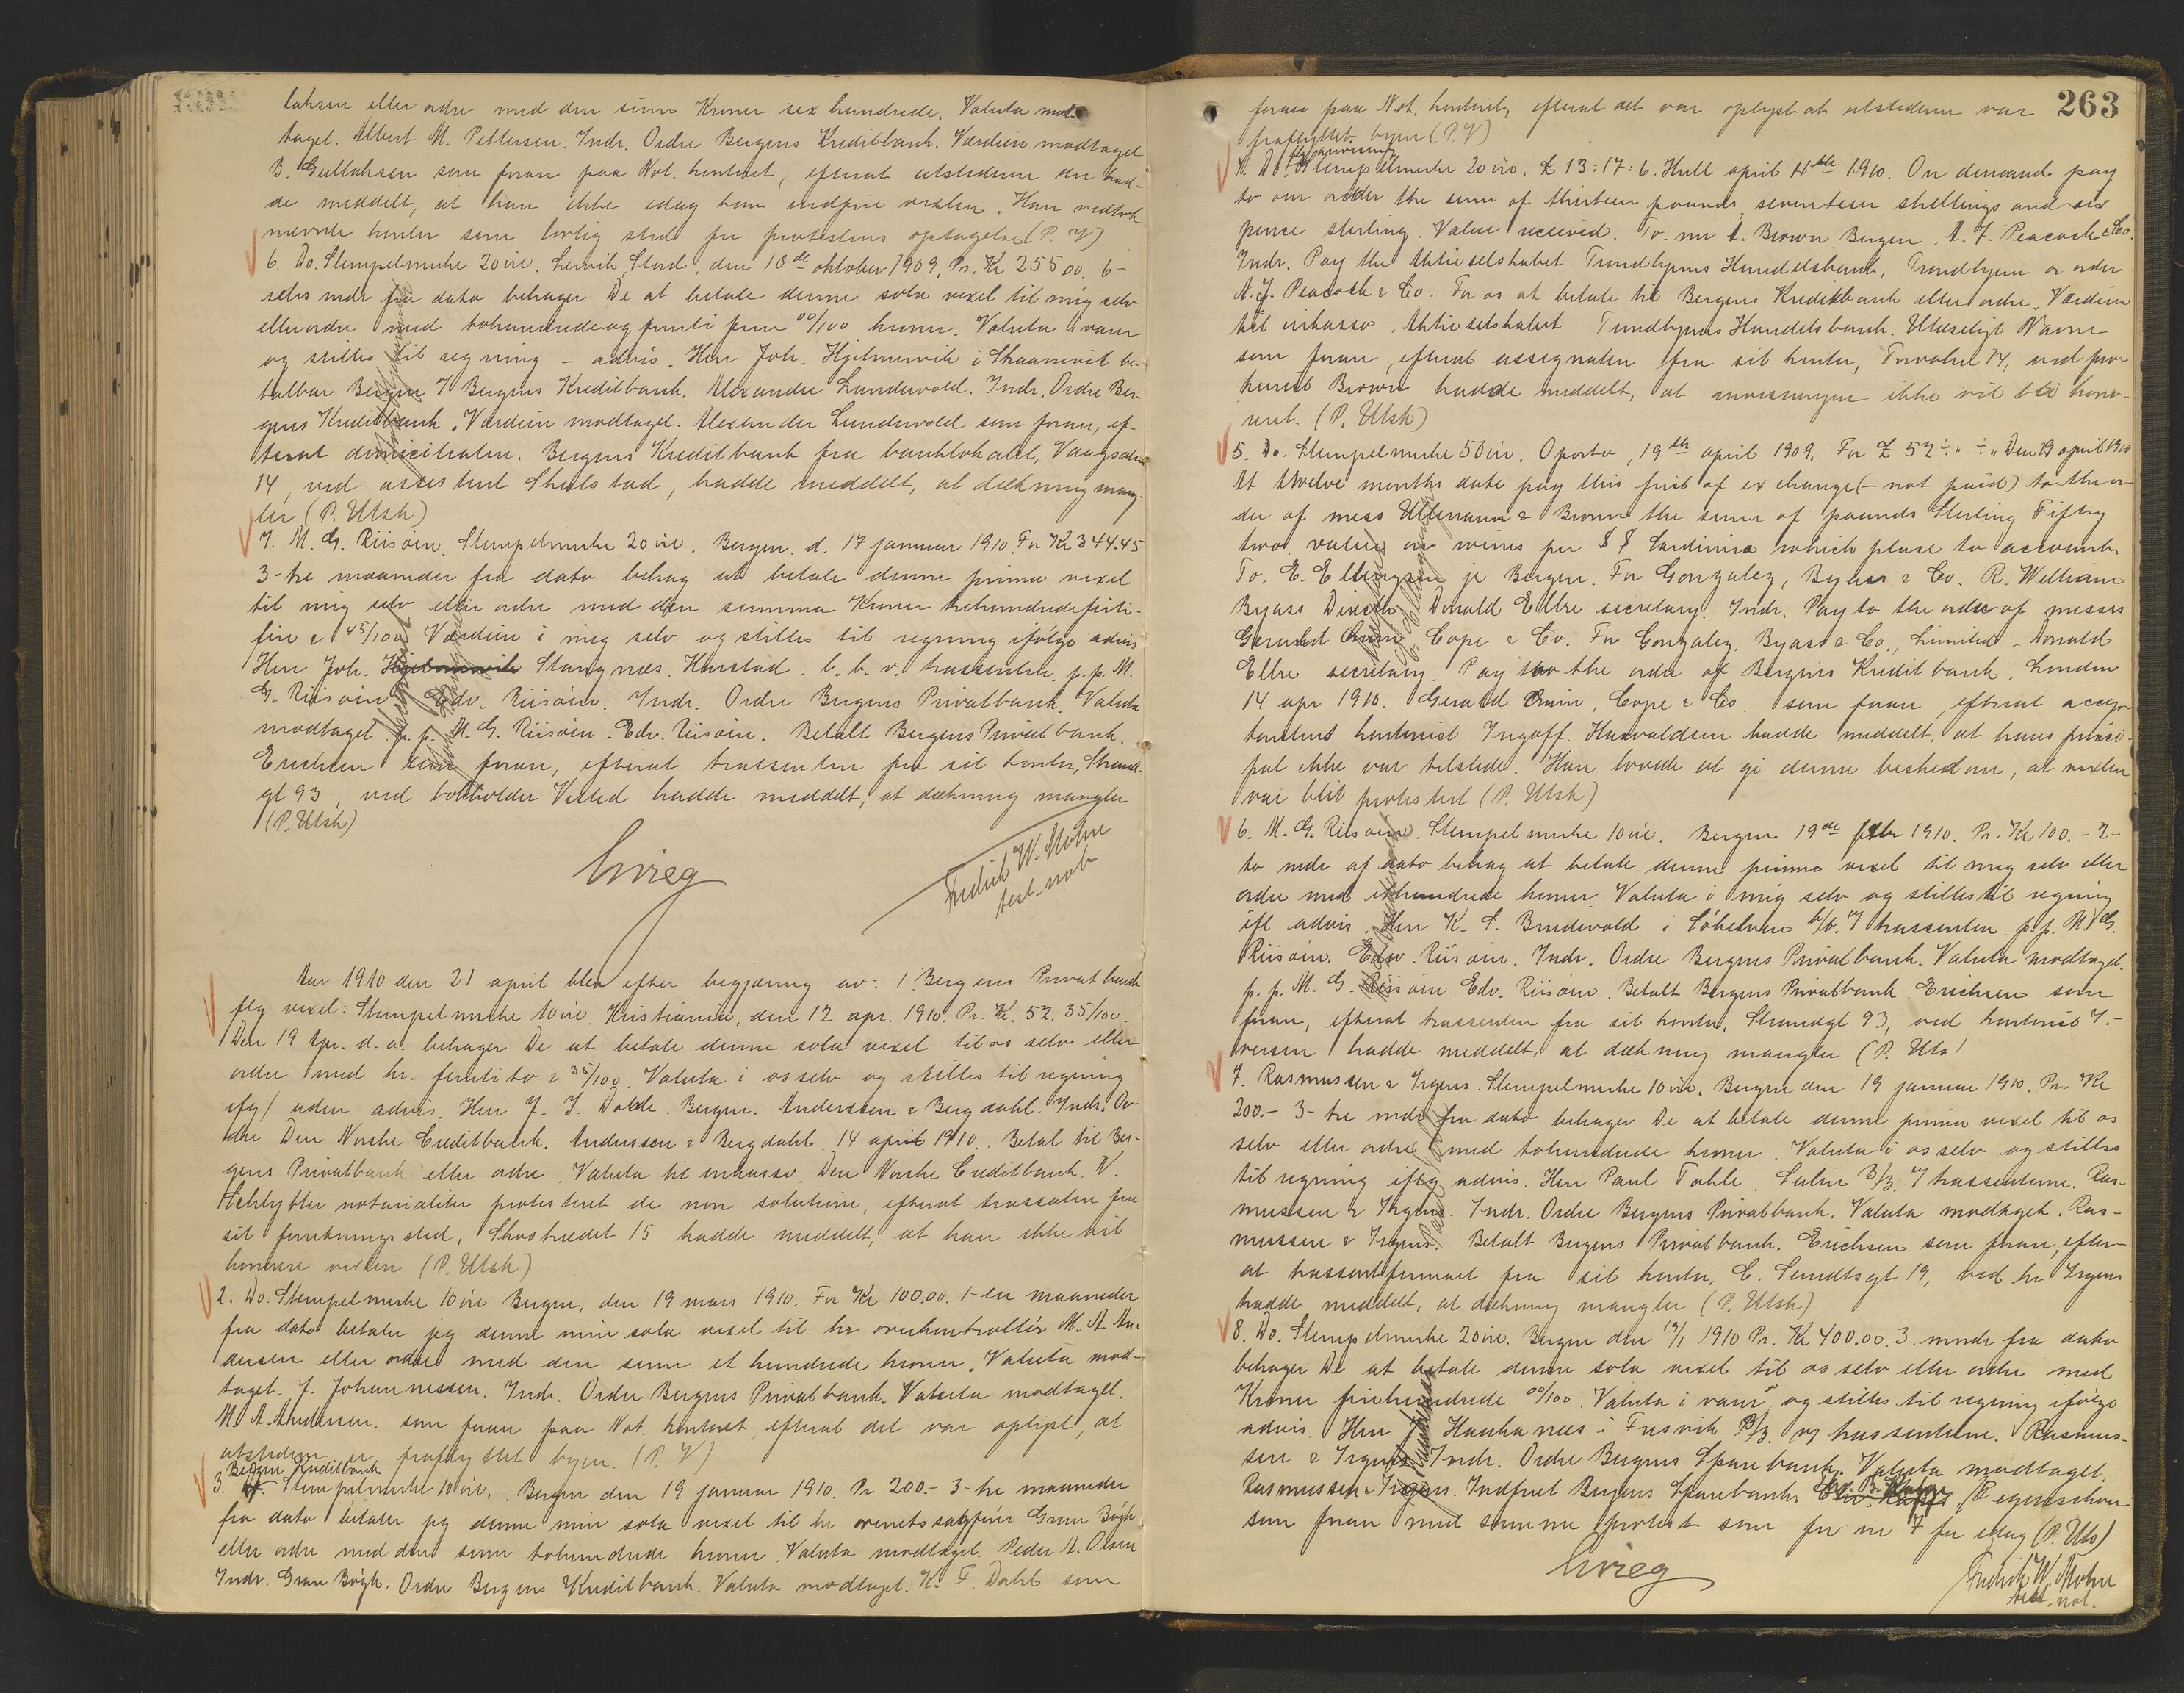 lahsen eller ordre med den sum Kroner sex hundrede. Valuta mod-
taget. Albert M. Pettersen. Indr. Ordre Bergens Kreditbank. Værdien modtaget
B. Gullaksen som foran paa Not. kontoret, efterat utstederen der had-
de meddelt, at han ikke idag kan indfrie vexlen. Han vedtok
nævnte kontor som lovlig sted for protestens optagelse (P. V)
6. Do. Stempelmerke 20 øre. Lervik, Stord, den 18de oktober 1909. Pr. Kr 255 00. 6-
seks mdr fra dato behager De at betale denne sola vexel til mig selv
eller ordre med tohundredeogfemti fem 00/100 kroner. Valuta i varer
og stilles til regning - advis. Herr Joh. Hjelmervik i Skaanevik be-
talbar Bergen I Bergens Kreditbank. Alexander Lundervold. Indr. Ordre Ber-
gens Kreditbank. Værdien modtaget. Alexander Lundervold som foran, ef-
terat domiciliaten. Bergens Kreditbank fra banklokalet, Vaagsalm
14, ved assistent Skulstad, hadde meddelt, at dækning mang-
ler (P. Utsk)
7. M. G. Riisøen. Stempelmerke 20 øre. Bergen. d. 17 januar 1910. For Kr 344.45
3-tre maaneder fra dato behag at betale denne prima vexel
til mig selv eller ordre med den summa Kroner trehundredefirti-
fire & 45/100 Værdien i mig selv og stilles til regning ifølge advis
Herr Joh. Hjelmervik Stangnæs. Harstad. b. b. v. trassenten. p. p. M.
G. Riisøen Edv. Riisøen. Indr. Ordre Bergens Privatbank. Valuta
modtaget p. p. M. G. Riisøen. Edv. Riisøen. Betalt Bergens Privatbank.
Erichsen som foran, efterat trassenten fra sit kontor, Strand-
gt 93, ved bokholder Vested hadde meddelt, at dækning mangler
(P. Utsk)
Grieg
Fredrik W. Mohn
test. not
Aar 1910 den 21 april blev efter begjæring av: 1. Bergens Privatbank
flg vexel: Stempelmerke 10 øre. Kristiania, den 12 apr. 1910. Pr. Kr. 52. 35/100.
Den 19 Apr. d. a. behager De at betale denne sola vexel til os selv eller
ordre med kr. femti to & 35/100. Valuta i os selv og stilles til regning
ifg/ uden advis. Herr J. J. Dolde. Bergen. Anderssen & Bergdahl. Indr. Or-
dre Den Norske Creditbank. Anderssen & Bergdahl. 14 april 1910. Betal til Ber-
gens Privatbank eller ordre. Valuta til inkasso. Den Norske Creditbank. N.
notarialiter protesteret de non solutione, efterat trassaten fra
sit forretningssted, Skostrædet 15 hadde meddelt, at han ikke vil
honorere vexlen (P. Utsk)
2. Do. Stempelmerke 10 øre Bergen, den 19 mars 1910. For Kr 100.00. 1-en maaneder
fra dato betaler jeg denne min sola vexel til hr overkontrollør M. A. An-
dersen eller ordre med den sum et hundrede kroner. Valuta mod-
taget. J. Johannessen. Indr. Ordre Bergens Privatbank. Valuta modtaget.
M. A. Andersen. som foran paa Not. kontoret, efterat det var oplyst, at
utstederen er fraflyttet byen. (P. V)
Bergens Kreditbank
3. Do. Stempelmerke 10 øre. Bergen den 19 januar 1910. Pr 200.- 3-tre maaneder
fra dato betaler jeg denne min sola vexel til hr overretssakfører Gran Bøgh
eller ordre med den sum tohundrede kroner. Valuta modtaget. Peder A. Olsen
Indr. Gran Bøgh. Ordre Bergens Kreditbank. Valuta modtaget. K. F. Dahl som
263
foran paa Not. kontoret, efterat det var oplyst at utstederen var
fraflyttet byen (P. V)
flg anvisning
4. Do. Stempelmerke 20 øre. £ 13:17:6. Hull april 4the 1910. On demand pay
to our order the sum of thirteen pounds seventeen shillings and six
pence sterling. Value received. To. mr A. Brown Bergen. A. J. Peacock & Co.
Indr. Pay the Aktieselskabet Trondhjems Handelsbank, Trondhjem or order
A. J. Peacock & Co. For os at betale til Bergens Kreditbank eller ordre. Værdien
til inkasso. Aktieselskabet Trondhjems Handelsbank. Ulæseligt Navn
som foran, efterat assignaten fra sit kontor, Torvalm 14, ved pro-
kurist Brown hadde meddelt, at anvisningen ikke vil bli hono-
reret. (P. Utsk)
5. Do. Stempelmerke 50 øre. Oporto, 19th april 1909. For £ 52 ÷ " ÷ " Den 19 april 1910
At twelve months date pay this first of exchange (- not paid) to the or-
der of mess Ullmann & Brown the sum of pounds Sterling Fifty
two, value in wines per S S Sardinia which place to account.
To. E. Ellingsen jr Bergen. For Gonzalez, Byass & Co. R. William
Byass Director Donald Ellre secretary. Indr. Pay to the order of messrs
Gerard Cope & Co. For Gonzalez. Byass & Co., Limited - Donald
Ellre secretary. Pay to the order of Bergens Kreditbank. London
14 apr 1910. Gerard Cope & Co som foran, efterat accep-
tantens kontorist Ingolf. Haavaldsen hadde meddelt, at hans princi-
pal ikke var tilstede. Han lovde at gi denne besked om, at vexlen
var blit protestert (P. Utsk)
6. M. G. Riisøen. Stempelmerke 10 øre. Bergen 19de febr 1910. Pr. Kr 100. - 2-
to mdr af dato behag at betale denne prima vexel til mig selv eller
ordre med ethundrede kroner. Valuta i mig selv og stilles til regning
ifl advis. Herr K. S. Brudevold i b/b. I trassenten. p. p. M. G.
Riisøen. Edv. Riisøen. Indr. Ordre Bergens Privatbank. Valuta modtaget.
p. p. M. G. Riisøen. Edv. Riisøen. Betalt Bergens Privatbank. Erichsen som
foran, efterat trassenten fra sit kontor, Strandgt 93, ved kontorist I.-
versen hadde meddelt, at dækning mangler (P. Uts)
7. Rasmussen & Irgens. Stempelmerke 10 øre. Bergen den 19 januar 1910. Pr. Kr
200.- 3-tre mdr fra dato behager De at betale denne prima vexel til os
selv eller ordre med tohundrede kroner. Valuta i os selv og stilles
til regning ifig advis. Herr Paul Tahle B/B. I trassenterne. Ras-
mussen & Irgens. Indr. Ordre Bergens Privatbank. Valuta modtaget. Ras-
mussen & Irgens. Betalt Bergens Privatbank. Erichsen som foran, efter-
at trassentfirmaet fra sit kontor, C. Sundtsgt 19, ved hr Irgens
hadde meddelt, at dækning mangler (P. Utsk)
8. Do. Stempelmerke 20 øre. Bergen den 19/1 1910 Pr. Kr 400.00. 3. mndr fra dato
behager De at betale denne sola vexel til os selv eller ordre med
Kroner firehundrede 00/100. Valuta i varer" og stilles til regning ifølge
advis. Herr Haukanæs i Fusvik B/B. v trassenterne. Rasmus-
sen & Irgens. Indr. Ordre Bergens Sparebank. Valuta modtaget.
Rasmussen & Irgens. Indfriet Bergens Sparebank. Egenschou
som foran med samme protest som for nr 7 for idag (P. Uts)
Grieg
Fredrik W. Mohn
test. not.